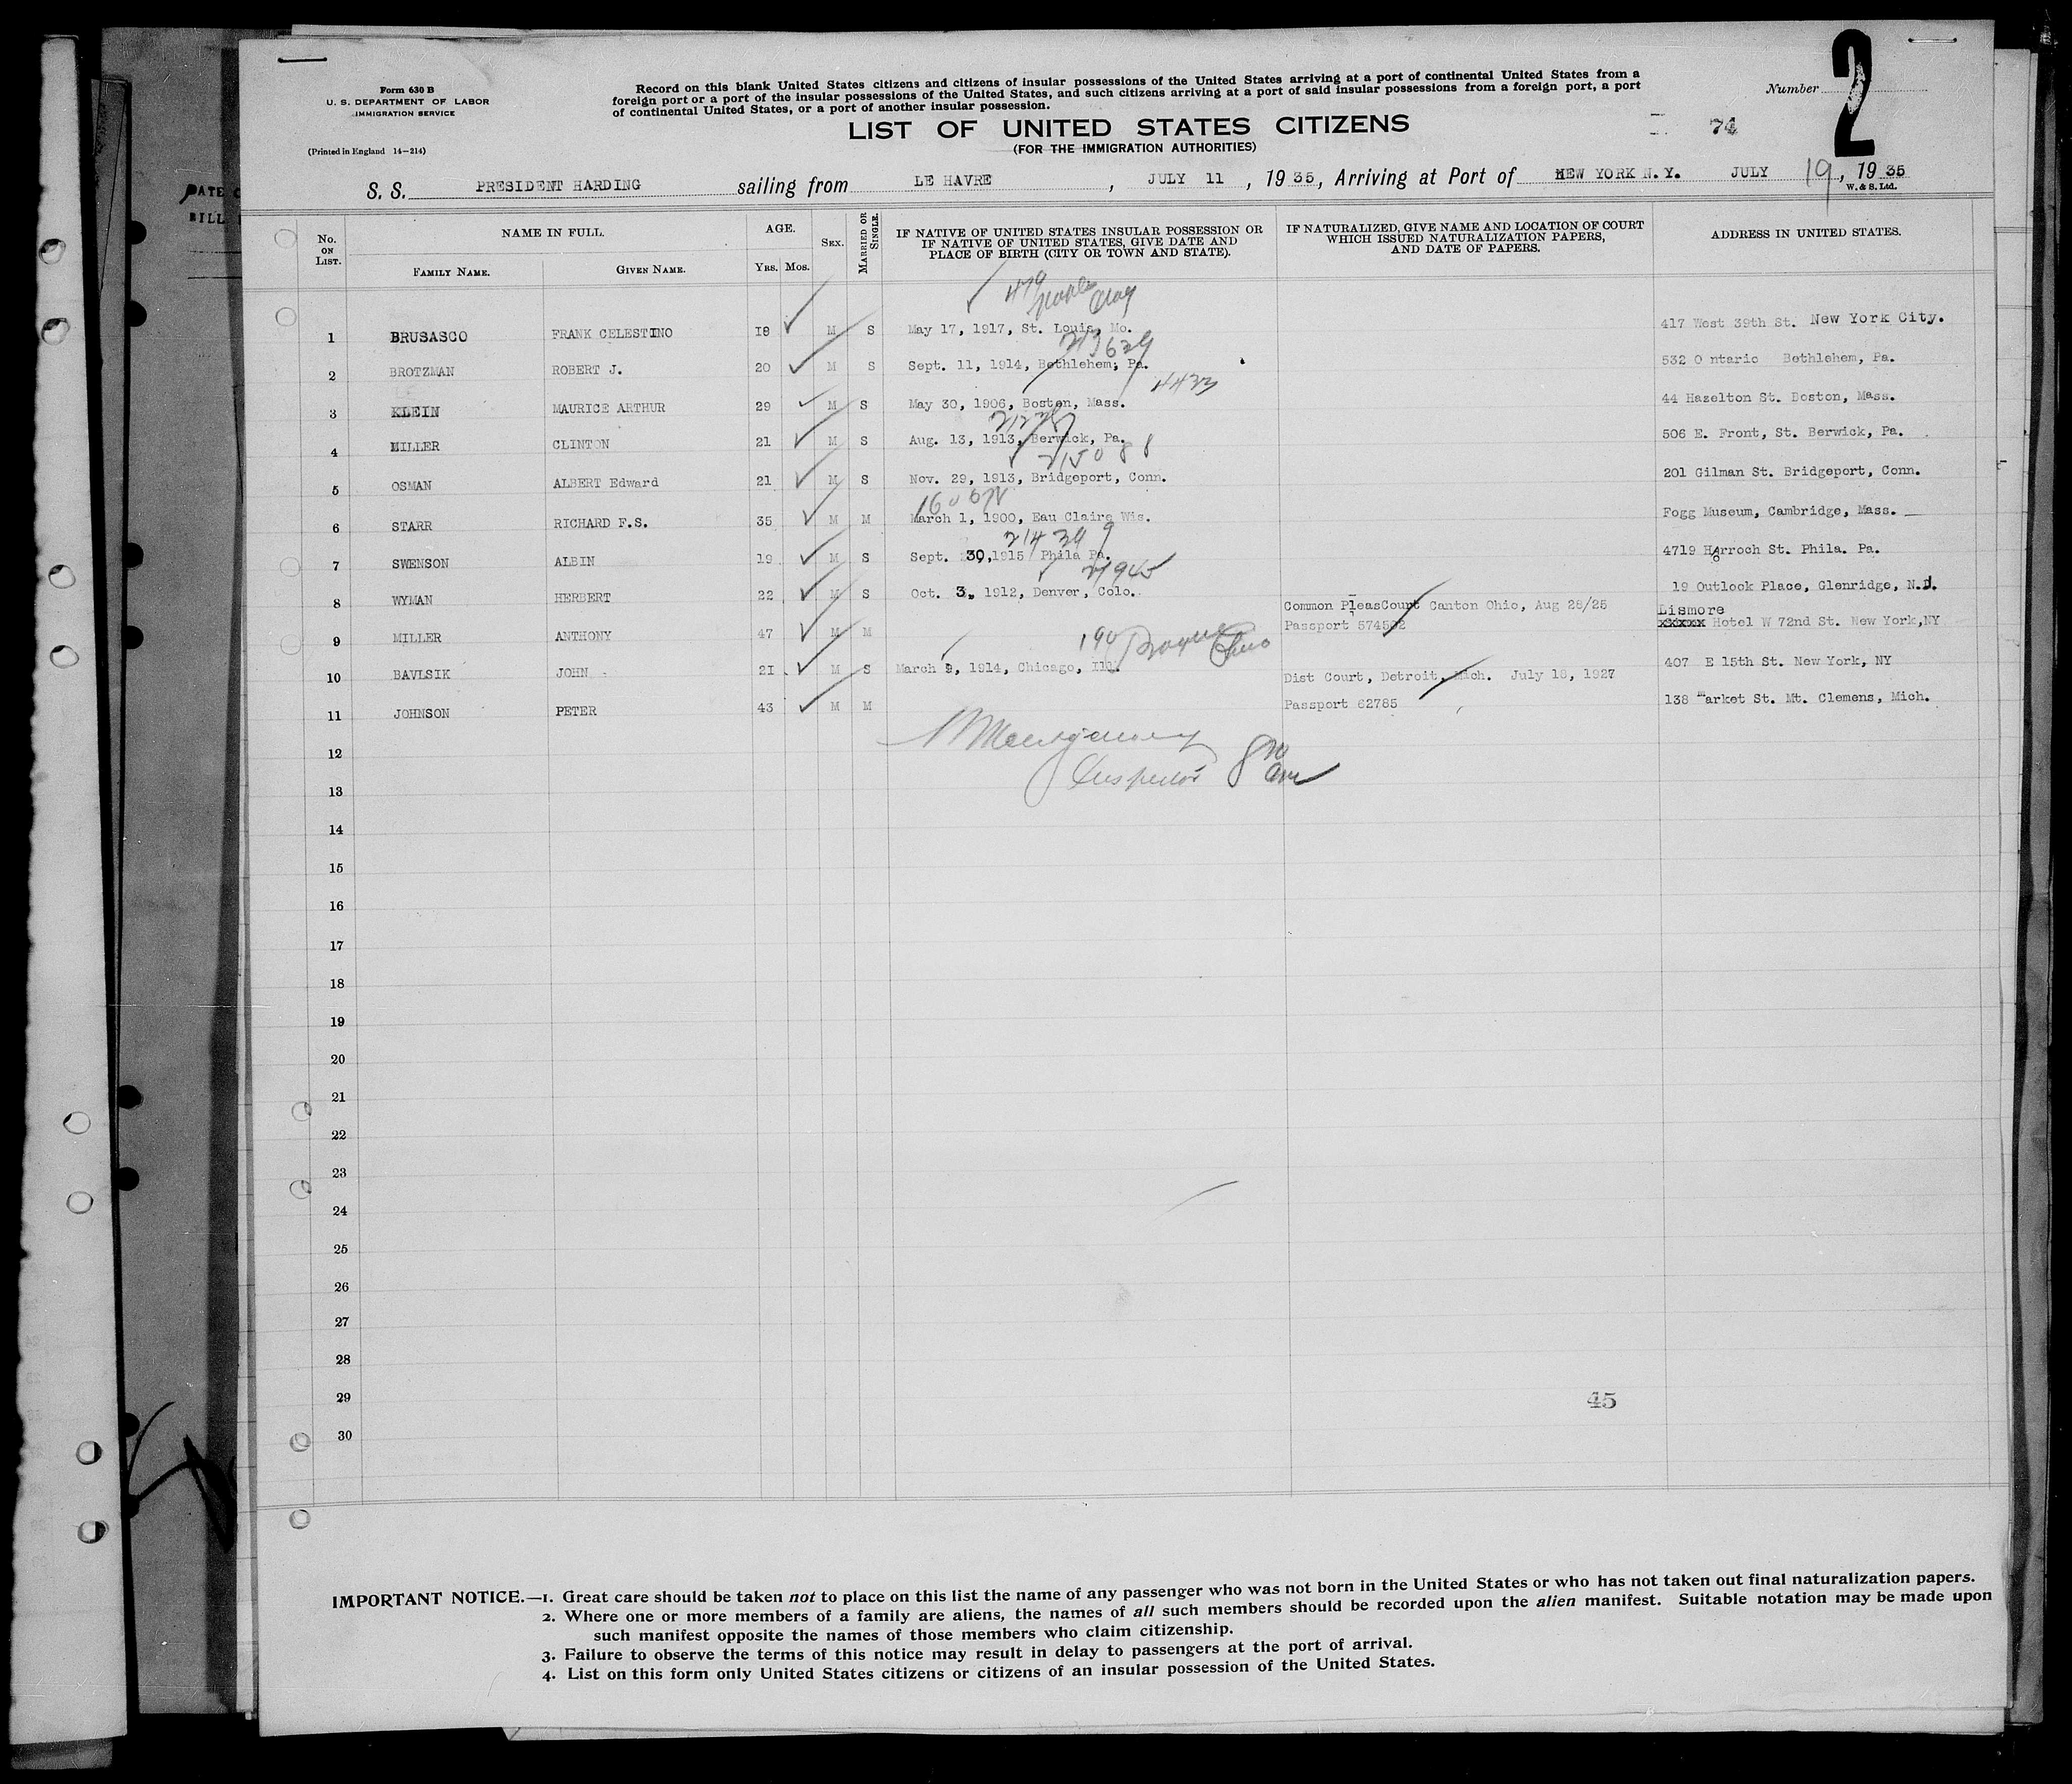 Form 630 B
U. S. DEPARTMENT OF LABOR
IMMIGRATION SERVICE
(Printed in England 14—214)
Record on this blank United States citizens and citizens of insular possessions of the United States arriving at a port of continental United States from a
foreign port or a port of the insular possessions of the United States, and such citizens arriving at a port of said insular possessions from a foreign port, a port
of continental United States, or a port of another insular possession.
Number
2
LIST OF UNITED STATES CITIZENS
(FOR THE IMMIGRATION AUTHORITIES)
74
S. S. PRESIDENT HARDING sailing from LE HAVRE, JULY 11, 1935, Arriving at Port of NEW YORK N.Y. JULY 19, 1935
W. & S. Ltd.
No. ON LIST.
NAME IN FULL.
FAMILY NAME.
GIVEN NAME.
AGE.
YRS. MOS.
SEX.
MARRIED OR SINGLE.
IF NATIVE OF UNITED STATES INSULAR POSSESSION OR
IF NATIVE OF UNITED STATES, GIVE DATE AND
PLACE OF BIRTH (CITY OR TOWN AND STATE).
IF NATURALIZED, GIVE NAME AND LOCATION OF COURT
WHICH ISSUED NATURALIZATION PAPERS,
AND DATE OF PAPERS.
ADDRESS IN UNITED STATES.
479
1 BRUSASCO FRANK CELESTINO 18 M S May 17, 1917, St. Louis, Mo. 417 West 39th St. New York City.
213629
2 BROTZMAN ROBERT J. 20 M S Sept. 11, 1914, Bethlehem, Pa. 532 O ntario Bethlehem, Pa.
4423
3 KLEIN MAURICE ARTHUR 29 M S May 30, 1906, Boston, Mass. 44 Hazelton St. Boston, Mass.
4 MILLER CLINTON 21 M S Aug. 13, 1913, Berwick, Pa. 506 E. Front, St. Berwick, Pa.
215088
5 OSMAN ALBERT Edward 21 M S Nov. 29, 1913, Bridgeport, Conn. 201 Gilman St. Bridgeport, Conn.
6 STARR RICHARD F.S. 35 M M March 1, 1900, Eau Claire Wis. Fogg Museum, Cambridge, Mass.
7 SWENSON ALBIN 19 M S Sept. 30, 1915 Phila Pa. 4719 St. Phila. Pa.
8 WYMAN HERBERT 22 M S Oct. 3, 1912, Denver, Colo. 19 Outlook Place, Glenridge, N.J.
Common PleasCourt Canton Ohio, Aug 28/25 Lismore
9 MILLER ANTHONY 47 M M Passport xxxxx Hotel W 72nd St. New York,NY
190 Ohio
10 BAVLSIK JOHN 21 M S March 9, 1914, Chicago, Ill. 407 E 15th St. New York, NY
Dist Court, Detroit, Mich. July 18, 1927
11 JOHNSON PETER 43 M M Passport 62785 138 market St. Mt. Clemens, Mich.
12
Montgomery
Inspector
13
14
15
16
17
18
19
20
21
22
23
24
25
26
27
28
29
45
30
IMPORTANT NOTICE.—1. Great care should be taken not to place on this list the name of any passenger who was not born in the United States or who has not taken out final naturalization papers.
2. Where one or more members of a family are aliens, the names of all such members should be recorded upon the alien manifest. Suitable notation may be made upon
such manifest opposite the names of those members who claim citizenship.
3. Failure to observe the terms of this notice may result in delay to passengers at the port of arrival.
4. List on this form only United States citizens or citizens of an insular possession of the United States.